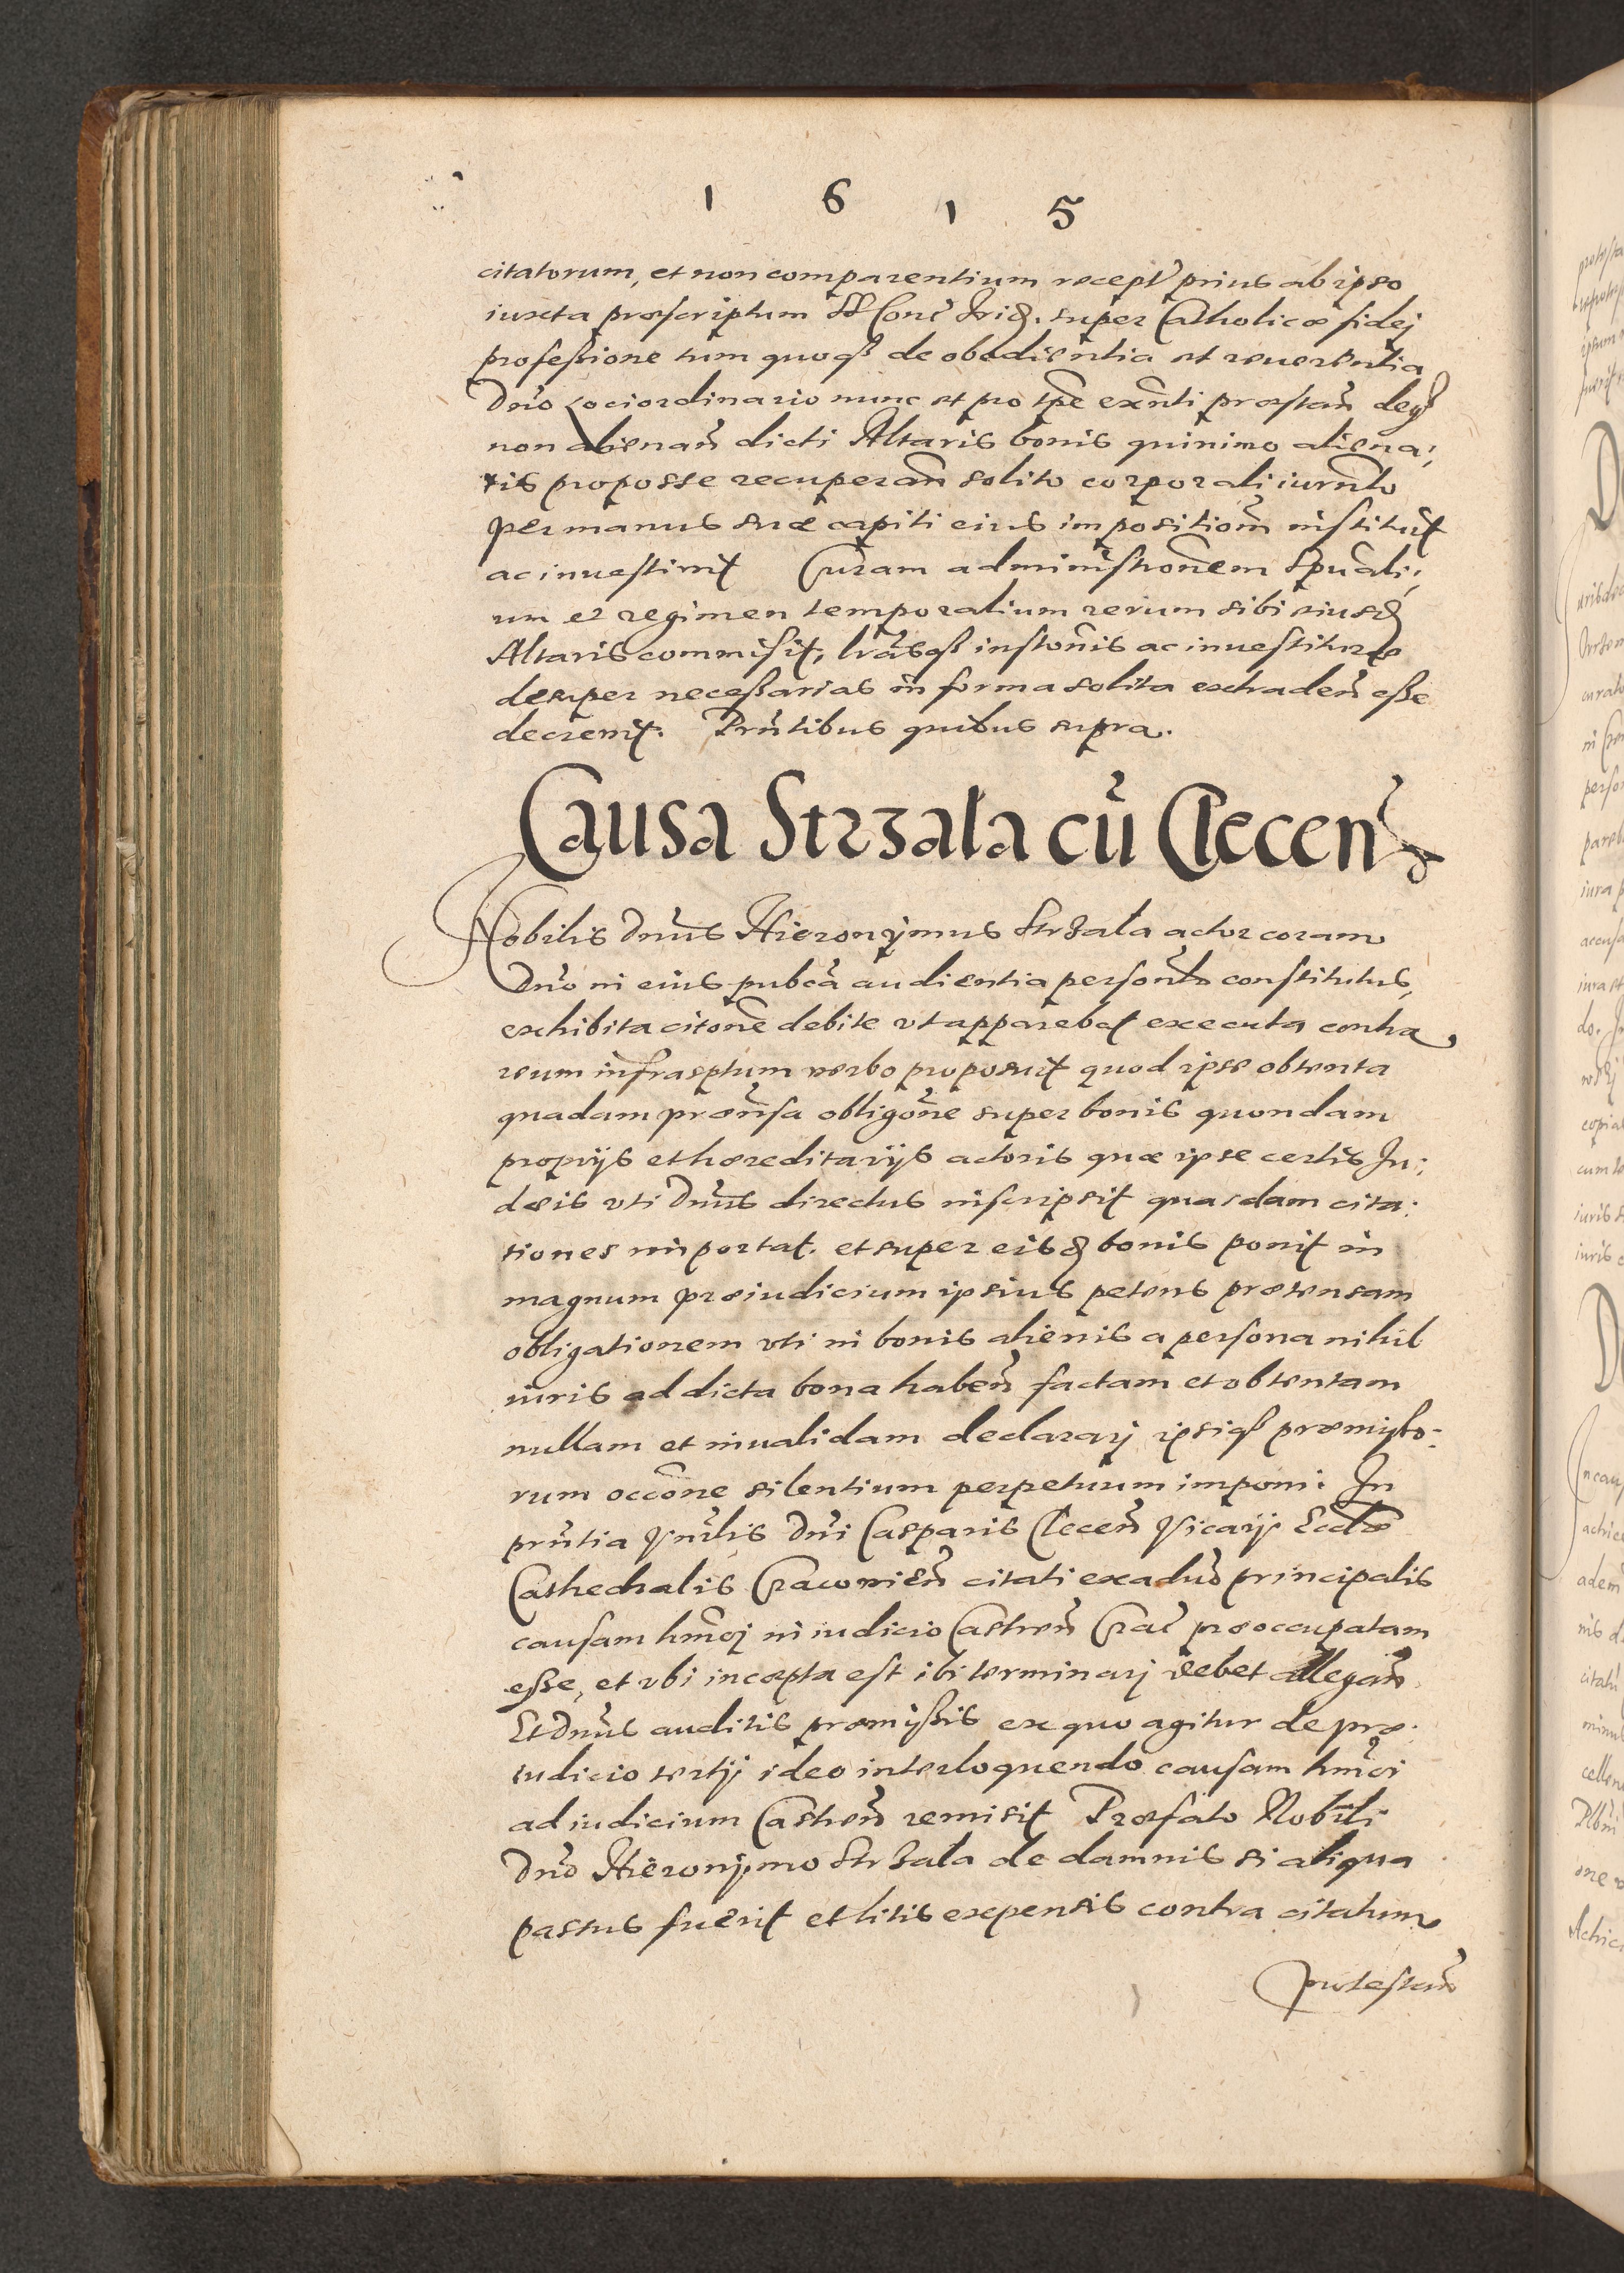 1 6 1 5
citatorum, et non comparentium recept' prius ab ipso
iuxta præscriptum SS Conc' Trid. super Catholicæ fidej
profeßione tum quoqꝫ de obedientia et reuerentia
Dnō Lociordinario nunc et pro tpē exn̄ti præstan̄ deqꝫ
non alienan̄ dicti Altaris bonis quinimo aliena:
tis proposse recuperan̄ solito corporali iurn̄to
per manus suæ capiti eius impositiom̄ instituit
ac inuestiuit Curam administrom̄em Spūali:
um et regimen temporalium rerum sibi eiusd
Altaris commisit, lrāsqꝫ instōnis ac inuestituræ
desuper neceßarias in forma solita extraden̄ eße
decreuit. Prn̄tibus quibus supra.
Causa Strzala cū Clecen̄
Nobilis Dnūs Hieronymus Strzała actor coram
Dnō in eius pubcā audientia personlr̄ constitutus,
exhibita citonē debite vt apparebat executa contra
reum infrascptum verbo proposuit quod ipse obtenta
quadam prætn̄sa obligōne super bonis quondam
proprijs et hæreditarijs actoris quæ ipse certis Ju:
dæis vti Dnūs directus inscripsit quasdam cita:
tiones importat. et super eisd bonis ponit in
magnum præiudicium ipsius petens prætensam
obligationem vti in bonis alienis a persona nihil
iuris ad dicta bona haben̄ factam et obtentam
nullam et inualidam declararj ipsiqꝫ præmißo:
rum occōne silentium perpetuum imponi. In
prn̄tia Vnr̄lis Dnī Casparis Clecen̄ Vicarij Ecclæ
Cathedralis Cracouien̄ citati exaduō principalis
causam hmōj in iudicio Castren̄ Crac' præoccupatam
eße, et vbi incæpta est ibi terminarj debet allegan̄.
Et Dnūs auditis præmißis ex quo agitur de præ:
iudicio tertij ideo interloquendo causam hmōi
ad iudicium Castren̄ remisit Præfato Nobili
Dnō Hieronymo Strzała de damnis si aliqua
passus fuerit et litis expensis contra citatum
protestan̄